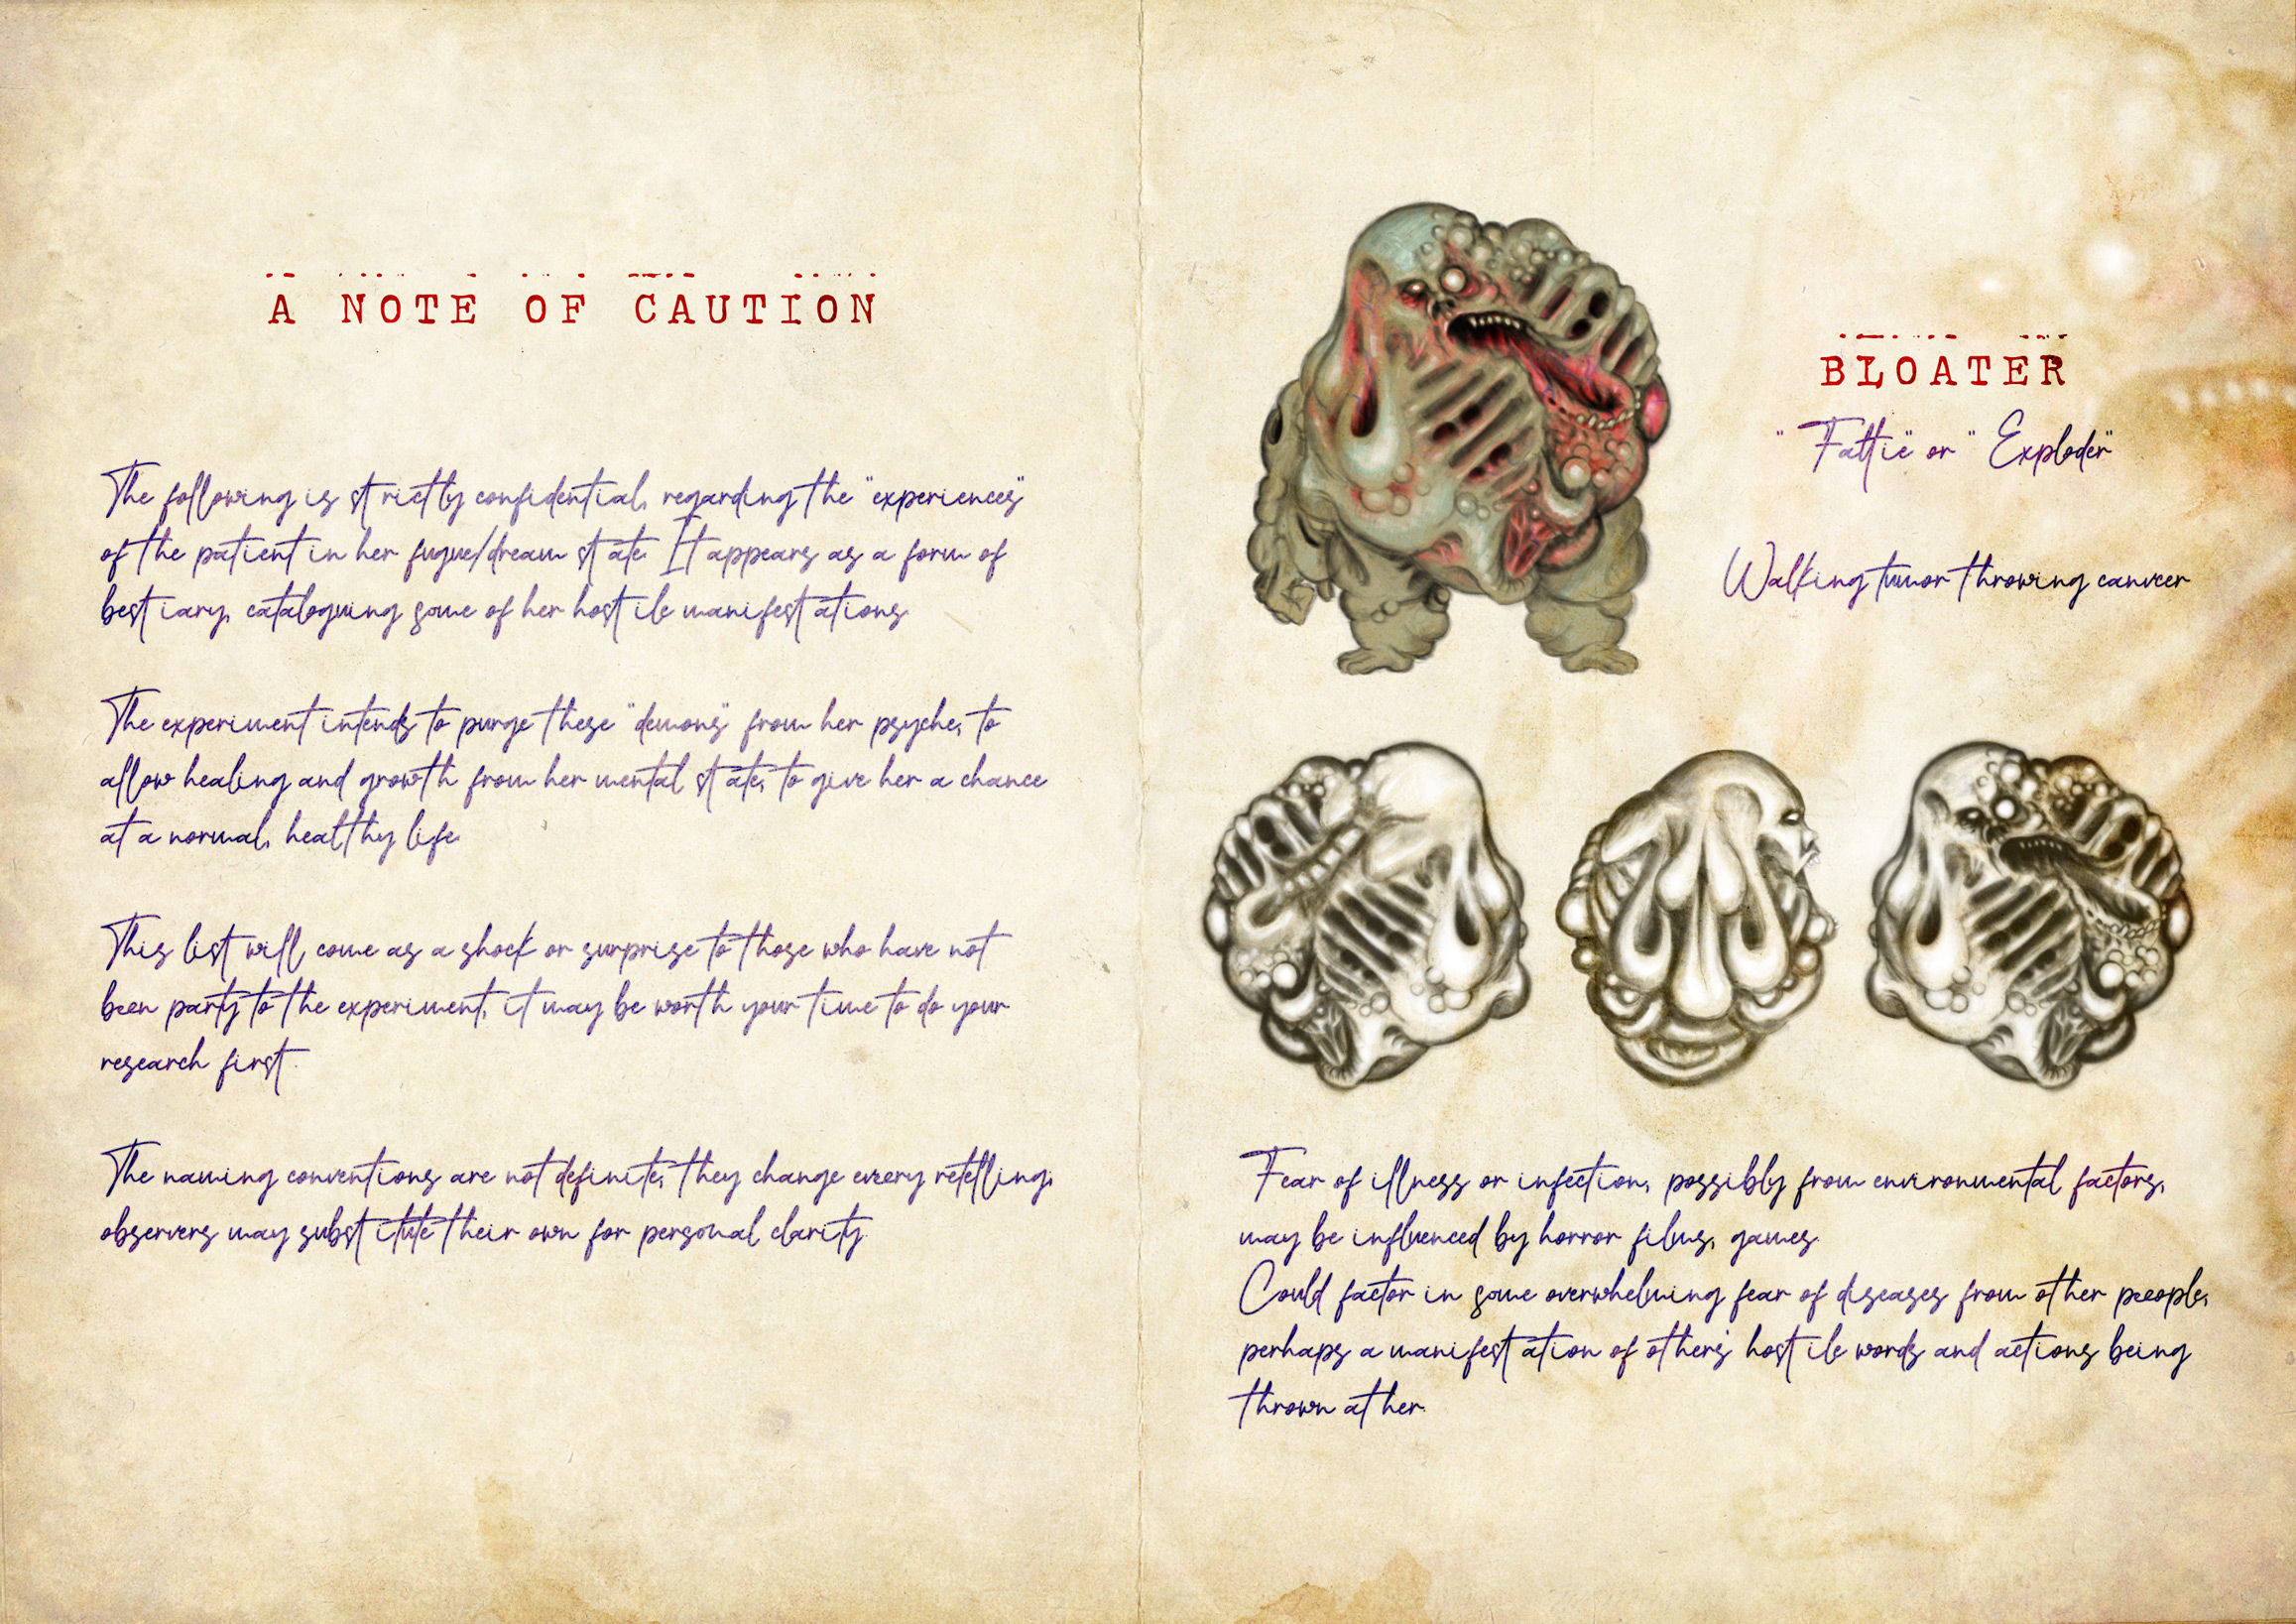 A NOTE OF CAUTION
The following is strictly confidential, regarding the "experiences"
of the patient in her fugue/dream state. It appears as a form of
bestiary, cataloguing some of her hostile manifestations.
The experiment intends to purge these "demons" from her psyche, to
allow healing and growth from her mental state, to give her a chance
at a normal, healthy life.
This list will come as a shock or surprise to those who have not
been party to the experiment, it may be worth your time to do your
research first.
The naming conventions are not definite, they change every retelling,
observers may substitute their own for personal clarity.
BLOATER
"Fattie" or "Exploder"
Walking tumor throwing cancer
Fear of illness or infection, possibly from environmental factors,
may be influenced by horror films, games.
Could factor in some overwhelming fear of diseases from other people,
perhaps a manifestation of others' hostile words and actions being
thrown at her.